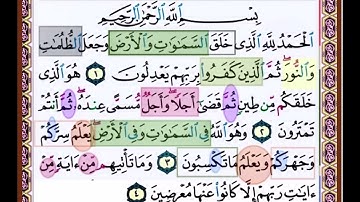 بِسْمِ ٱللَّهِ ٱلرَّحْمَٰنِ ٱلرَّحِيمِ
ٱلْحَمْدُ لِلَّهِ ٱلَّذِى خَلَقَ ٱلسَّمَٰوَٰتِ وَٱلْأَرْضَ وَجَعَلَ ٱلظُّلُمَٰتِ
وَٱلنُّورَ ثُمَّ ٱلَّذِينَ كَفَرُوا۟ بِرَبِّهِمْ يَعْدِلُونَ ١ هُوَ ٱلَّذِى
خَلَقَكُم مِّن طِينٍ ثُمَّ قَضَىٰٓ أَجَلًا وَأَجَلٌ مُّسَمًّى عِندَهُۥ ثُمَّ أَنتُمْ
تَمْتَرُونَ ٢ وَهُوَ ٱللَّهُ فِى ٱلسَّمَٰوَٰتِ وَفِى ٱلْأَرْضِ يَعْلَمُ سِرَّكُمْ
وَجَهْرَكُمْ وَيَعْلَمُ مَا تَكْسِبُونَ ٣ وَمَا تَأْتِيهِم مِّنْ ءَايَةٍ مِّنْ
ءَايَٰتِ رَبِّهِمْ إِلَّا كَانُوا۟ عَنْهَا مُعْرِضِينَ ٤